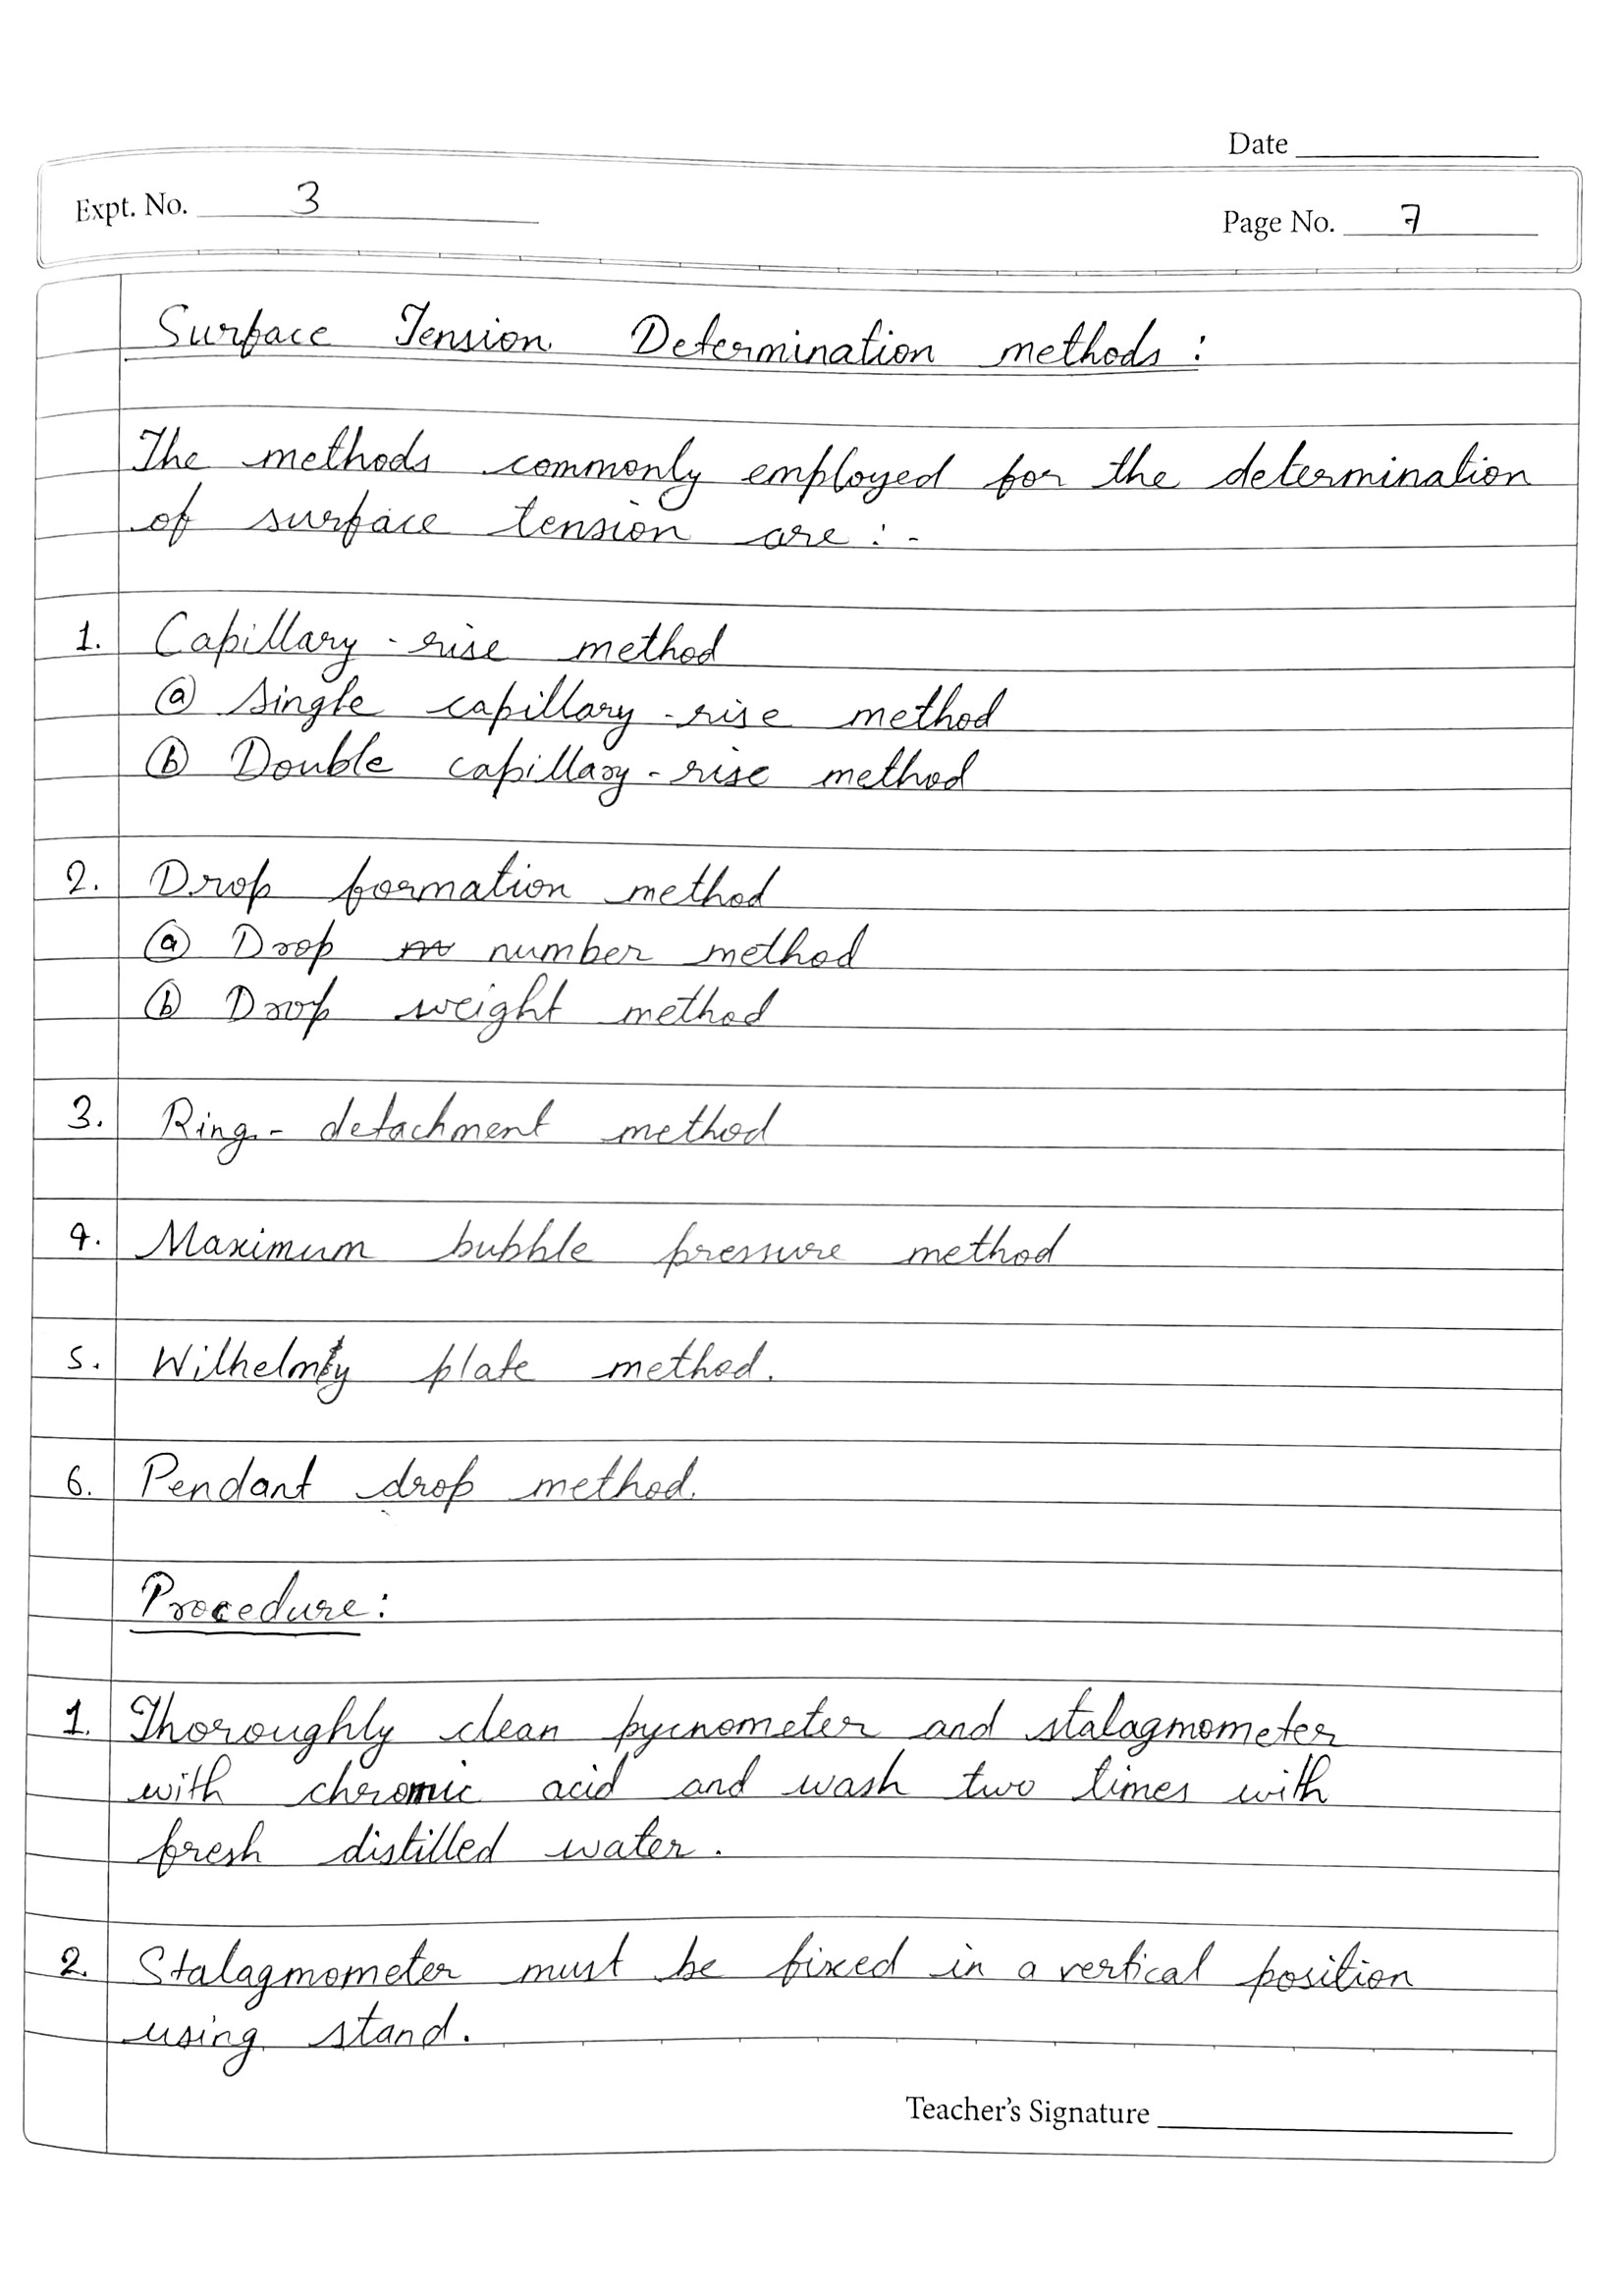 Date
Expt. No. 3
Page No. 7
Surface Tension Determination methods :
The methods commonly employed for the determination
of surface tension are : -
1. Capillary - rise method
ⓐ Single capillary - rise method
ⓑ Double capillary - rise method
2. Drop formation method
ⓐ Drop number method
ⓑ Drop weight method
3. Ring - detachment method
4. Maximum bubble pressure method
5. Wilhelmty plate method.
6. Pendant drop method.
Procedure :
1. Thoroughly clean pycnometer and stalagmometer
with chromic acid and wash two times with
fresh distilled water .
2. Stalagmometer must be fixed in a vertical position
using stand.
Teacher's Signature